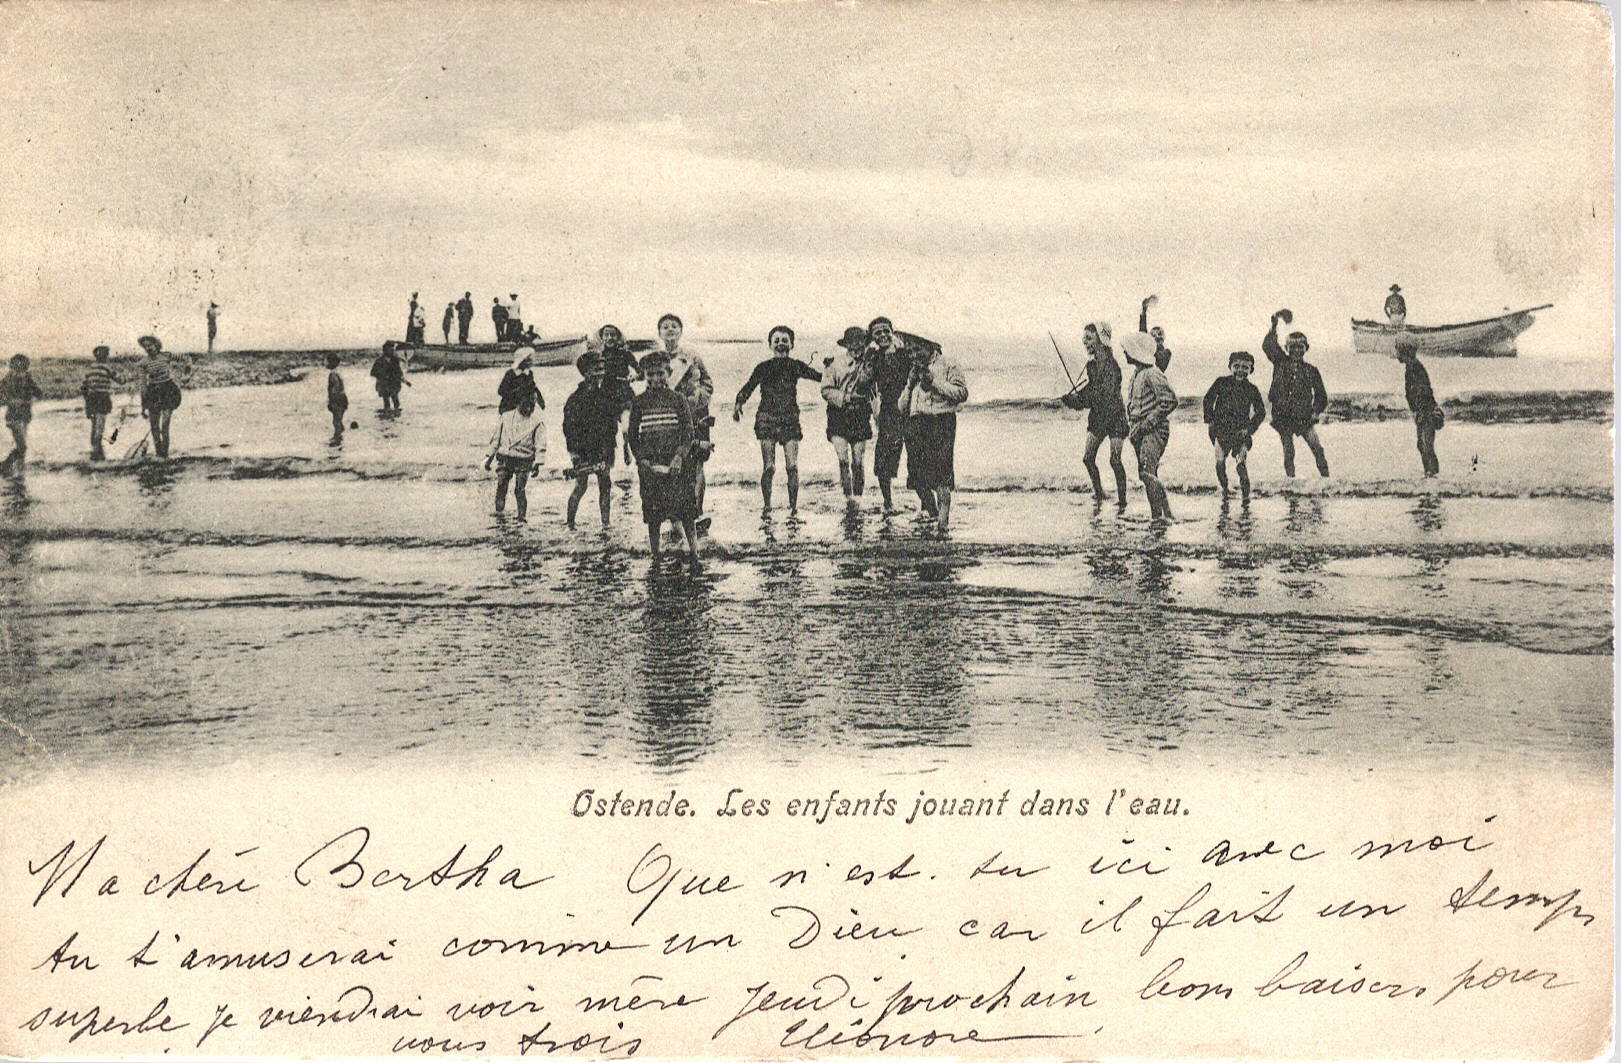 Ostende. Les enfants jouant dans l'eau.
Ma chéri Bertha Que n'est. tu ici avec moi
tu t'amuserai comme un Dieu car il fait un temps
superbe je viendrai voir mère jeudi prochain bons baisers pour
vous trois Eléonore